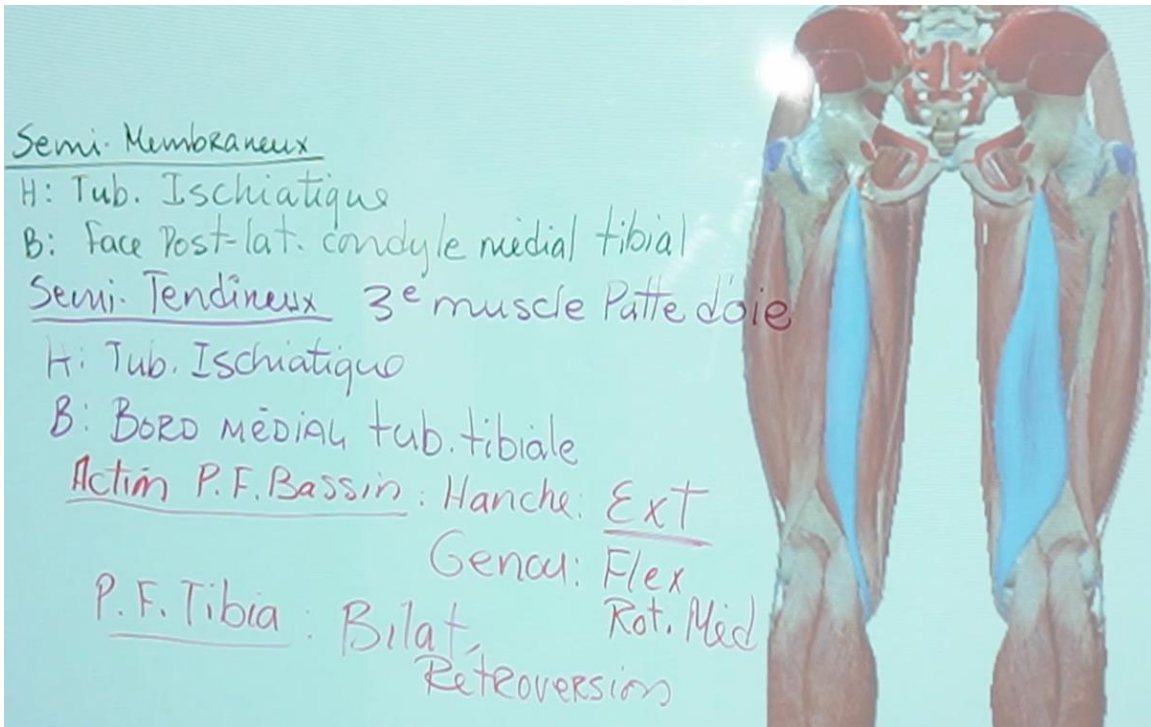 Semi-Membraneux
H: Tub. Ischiatique
B: Face Post-lat. condyle médial tibial
Semi-Tendineux 3e muscle Patte d'oie
H: Tub. Ischiatique
B: BORD MÉDIAL tub. tibiale
Action P.F. Bassin: Hanche: Ext
Genou: Flex
Rot. Méd
P.F. Tibia: Bilat,
Rétroversion